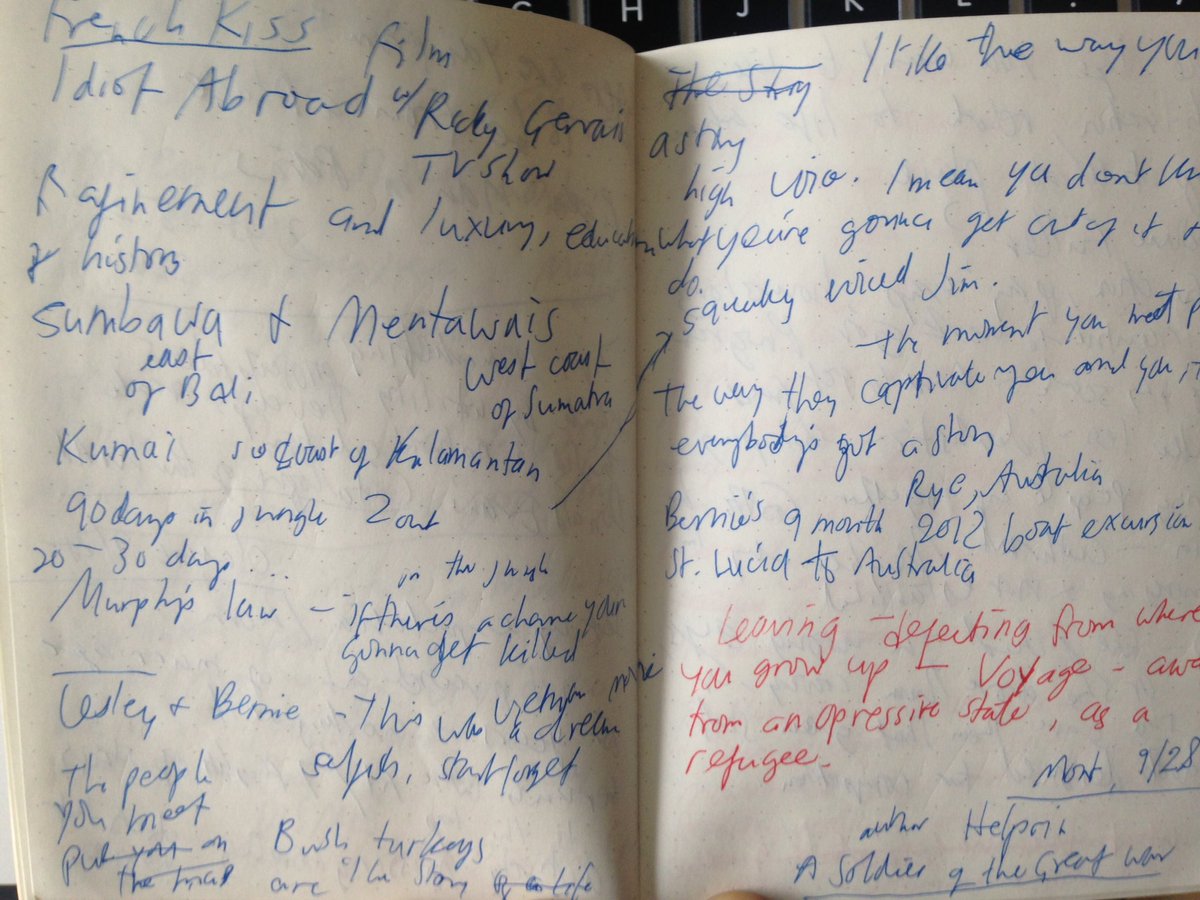 French Kiss film
Idiot Abroad w/ Ricky Gervais
TV Show
Rafinement and luxury, education
& history
Sumbawa & Mentawais
east west coast
of Bali of Sumatra
Kumai coast of Kalamantan
90 days in jungle 2 out
20-30 days...
in the jungle
Murphy's law - if there's a chance your
gonna get killed
Lesley & Bernie - This was a dream
The people selfish, start forget
you meet
put you on Bush turkeys
the trail are "the story of a life
The Story I like the way you
a story
high wire. I mean you don't
what you're gonna get out of it
do.
squeaky voiced Jim.
the moment you meet
The way they captivate you and you,
everybody's got a story
Rye, Australia
Bernie's 9 month 2012 boat excursion
St. Lucia to Australia
Leaving - defecting from where
you grow up - Voyage -
from an opressive state, as a
refugee.
Mont, 9/28
author Helprin
A Soldier of the Great War